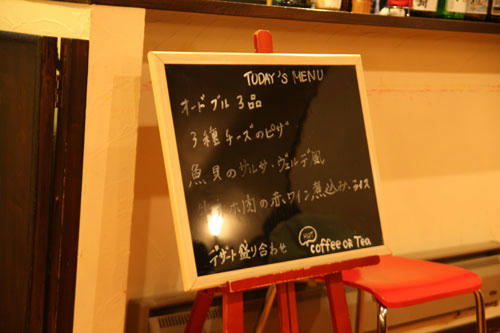 TODAY'S MENU
オードブル 3品
3種チーズのピザ
魚貝のサルサ・ヴェルデ風
ホホ肉の赤ワイン煮込み ライス
デザート盛り合わせ
HOT
Coffee OR Tea